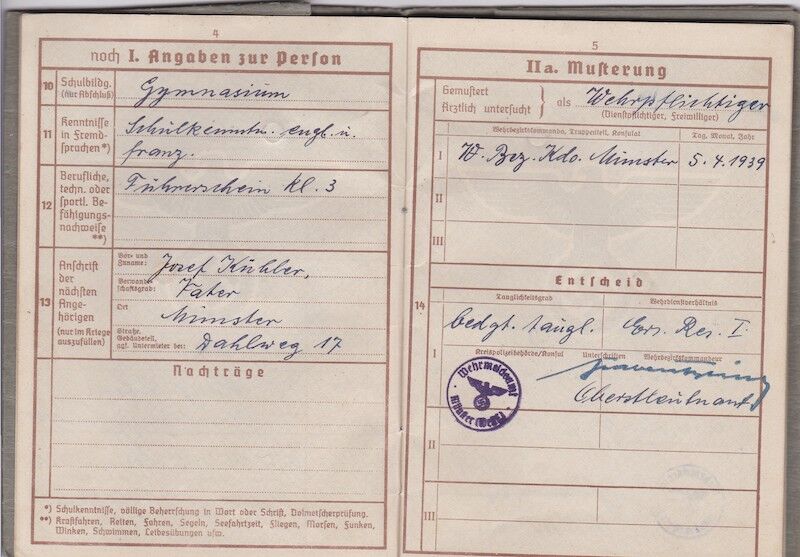 4
noch I. Angaben zur Person
10 Schulbildg. (nur Abschluß) Gymnasium
11 Kenntnisse in Fremdsprachen*) Schulkenntn. engl. u.
franz.
12 Berufliche, techn. oder sportl. Befähigungsnachweise **) Führerschein Kl. 3
13 Anschrift der nächsten Angehörigen (nur im Kriege auszufüllen)
Vor- und Zuname: Josef Kühler,
Verwandtschaftsgrad: Vater
Ort Münster
Straße, Gebäudeteil, ggf. Untermieter bei: Dahlweg 17
Nachträge
*) Schulkenntnisse, völlige Beherrschung in Wort oder Schrift, Dolmetscherprüfung.
**) Kraftfahren, Reiten, Fahren, Segeln, Seefahrtzeit, Fliegen, Morsen, Funken,
Winken, Schwimmen, Leibesübungen usw.
5
IIa. Musterung
Gemustert
Ärztlich untersucht } als Wehrpflichtiger
(Dienstpflichtiger, Freiwilliger)
Wehrbezirkskommando, Truppenteil, Konsulat Tag, Monat, Jahr
I W. Bez. Kdo. Münster 5.4.1939
II
III
14
Entscheid
Tauglichkeitsgrad Wehrdienstverhältnis
I bedgt. taugl. Ers. Res. I.
Kreispolizeibehörde/Konsul Unterschriften Wehrbezirkskommandeur
Wehrmeldeamt
Münster (Westf.)
Oberstleutnant
II
III